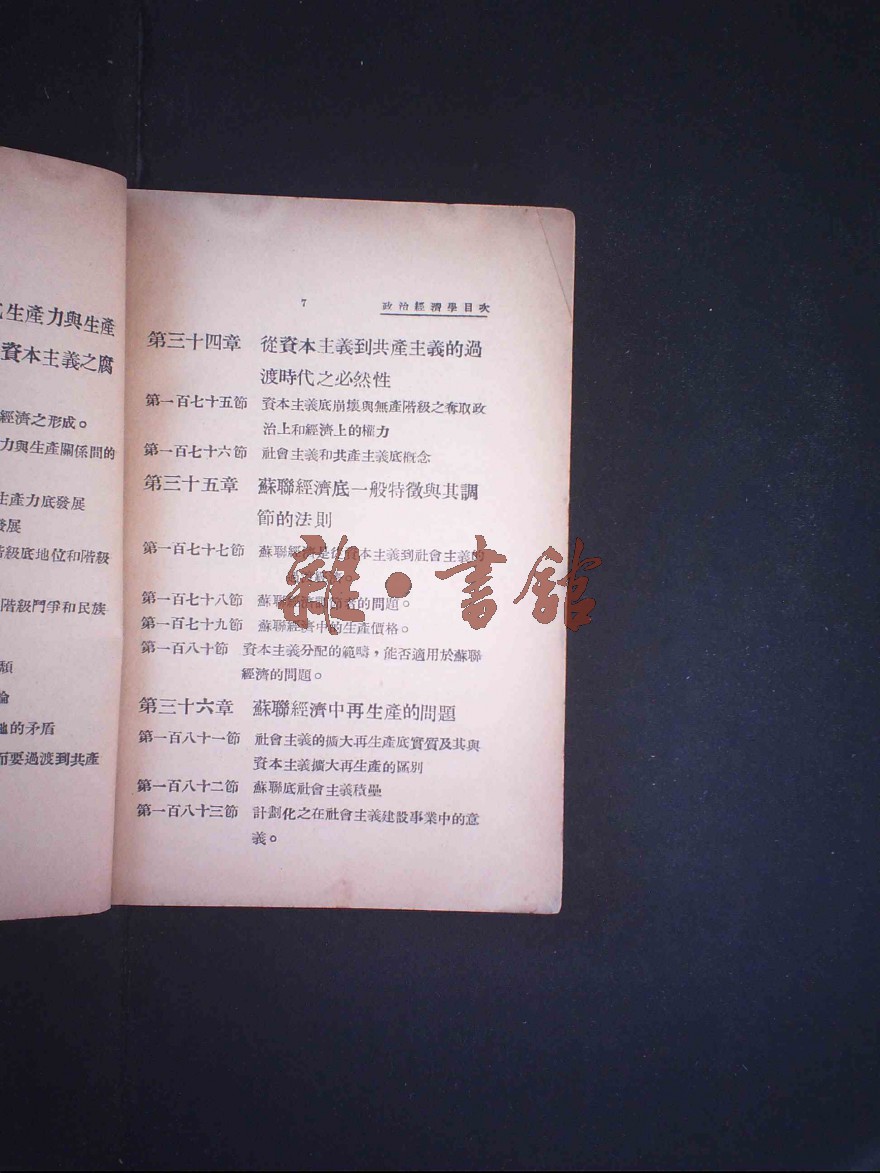 式生產力與生產
資本主義之腐
經濟之形成。
力與生產關係間的
生產力底發展
發展
階級底地位和階級
階級鬥爭和民族
類
論
的矛盾
而要過渡到共產
7 政治經濟學目次
第三十四章 從資本主義到共產主義的過
渡時代之必然性
第一百七十五節 資本主義底崩壞與無產階級之奪取政
治上和經濟上的權力
第一百七十六節 社會主義和共產主義底概念
第三十五章 蘇聯經濟底一般特徵與其調
節的法則
第一百七十七節 蘇聯經濟是從資本主義到社會主義的
第一百七十八節 蘇聯經濟調節者的問題。
第一百七十九節 蘇聯經濟中的生產價格。
第一百八十節 資本主義分配的範疇，能否適用於蘇聯
經濟的問題。
第三十六章 蘇聯經濟中再生產的問題
第一百八十一節 社會主義的擴大再生產底實質及其與
資本主義擴大再生產的區別
第一百八十二節 蘇聯底社會主義積壘
第一百八十三節 計劃化之在社會主義建設事業中的意
義。
雜·書館